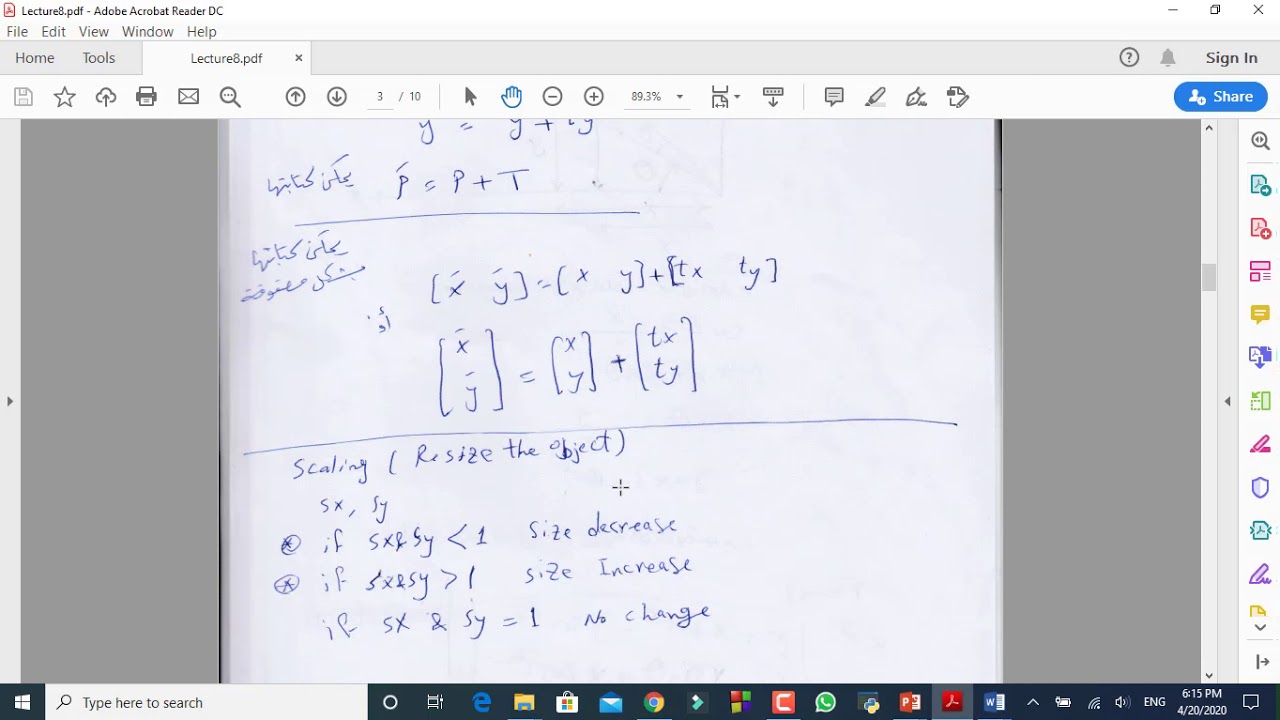 Lecture8.pdf - Adobe Acrobat Reader DC
File Edit View Window Help
Home Tools Lecture8.pdf × Sign In
3 / 10 89.3% Share
ȳ = y + ty
يمكن كتابتها P̄ = P + T
يمكن كتابتها
بشكل مصفوفة
[x̄ ȳ] = [x y] + [tx ty]
أو
[x̄ ȳ] = [x y] + [tx ty]
Scaling (Resize the object)
sx, sy
⊛ if sx & sy < 1 Size decrease
⊛ if sx & sy > 1 size Increase
if sx & sy = 1 No change
Type here to search
ENG 6:15 PM
4/20/2020